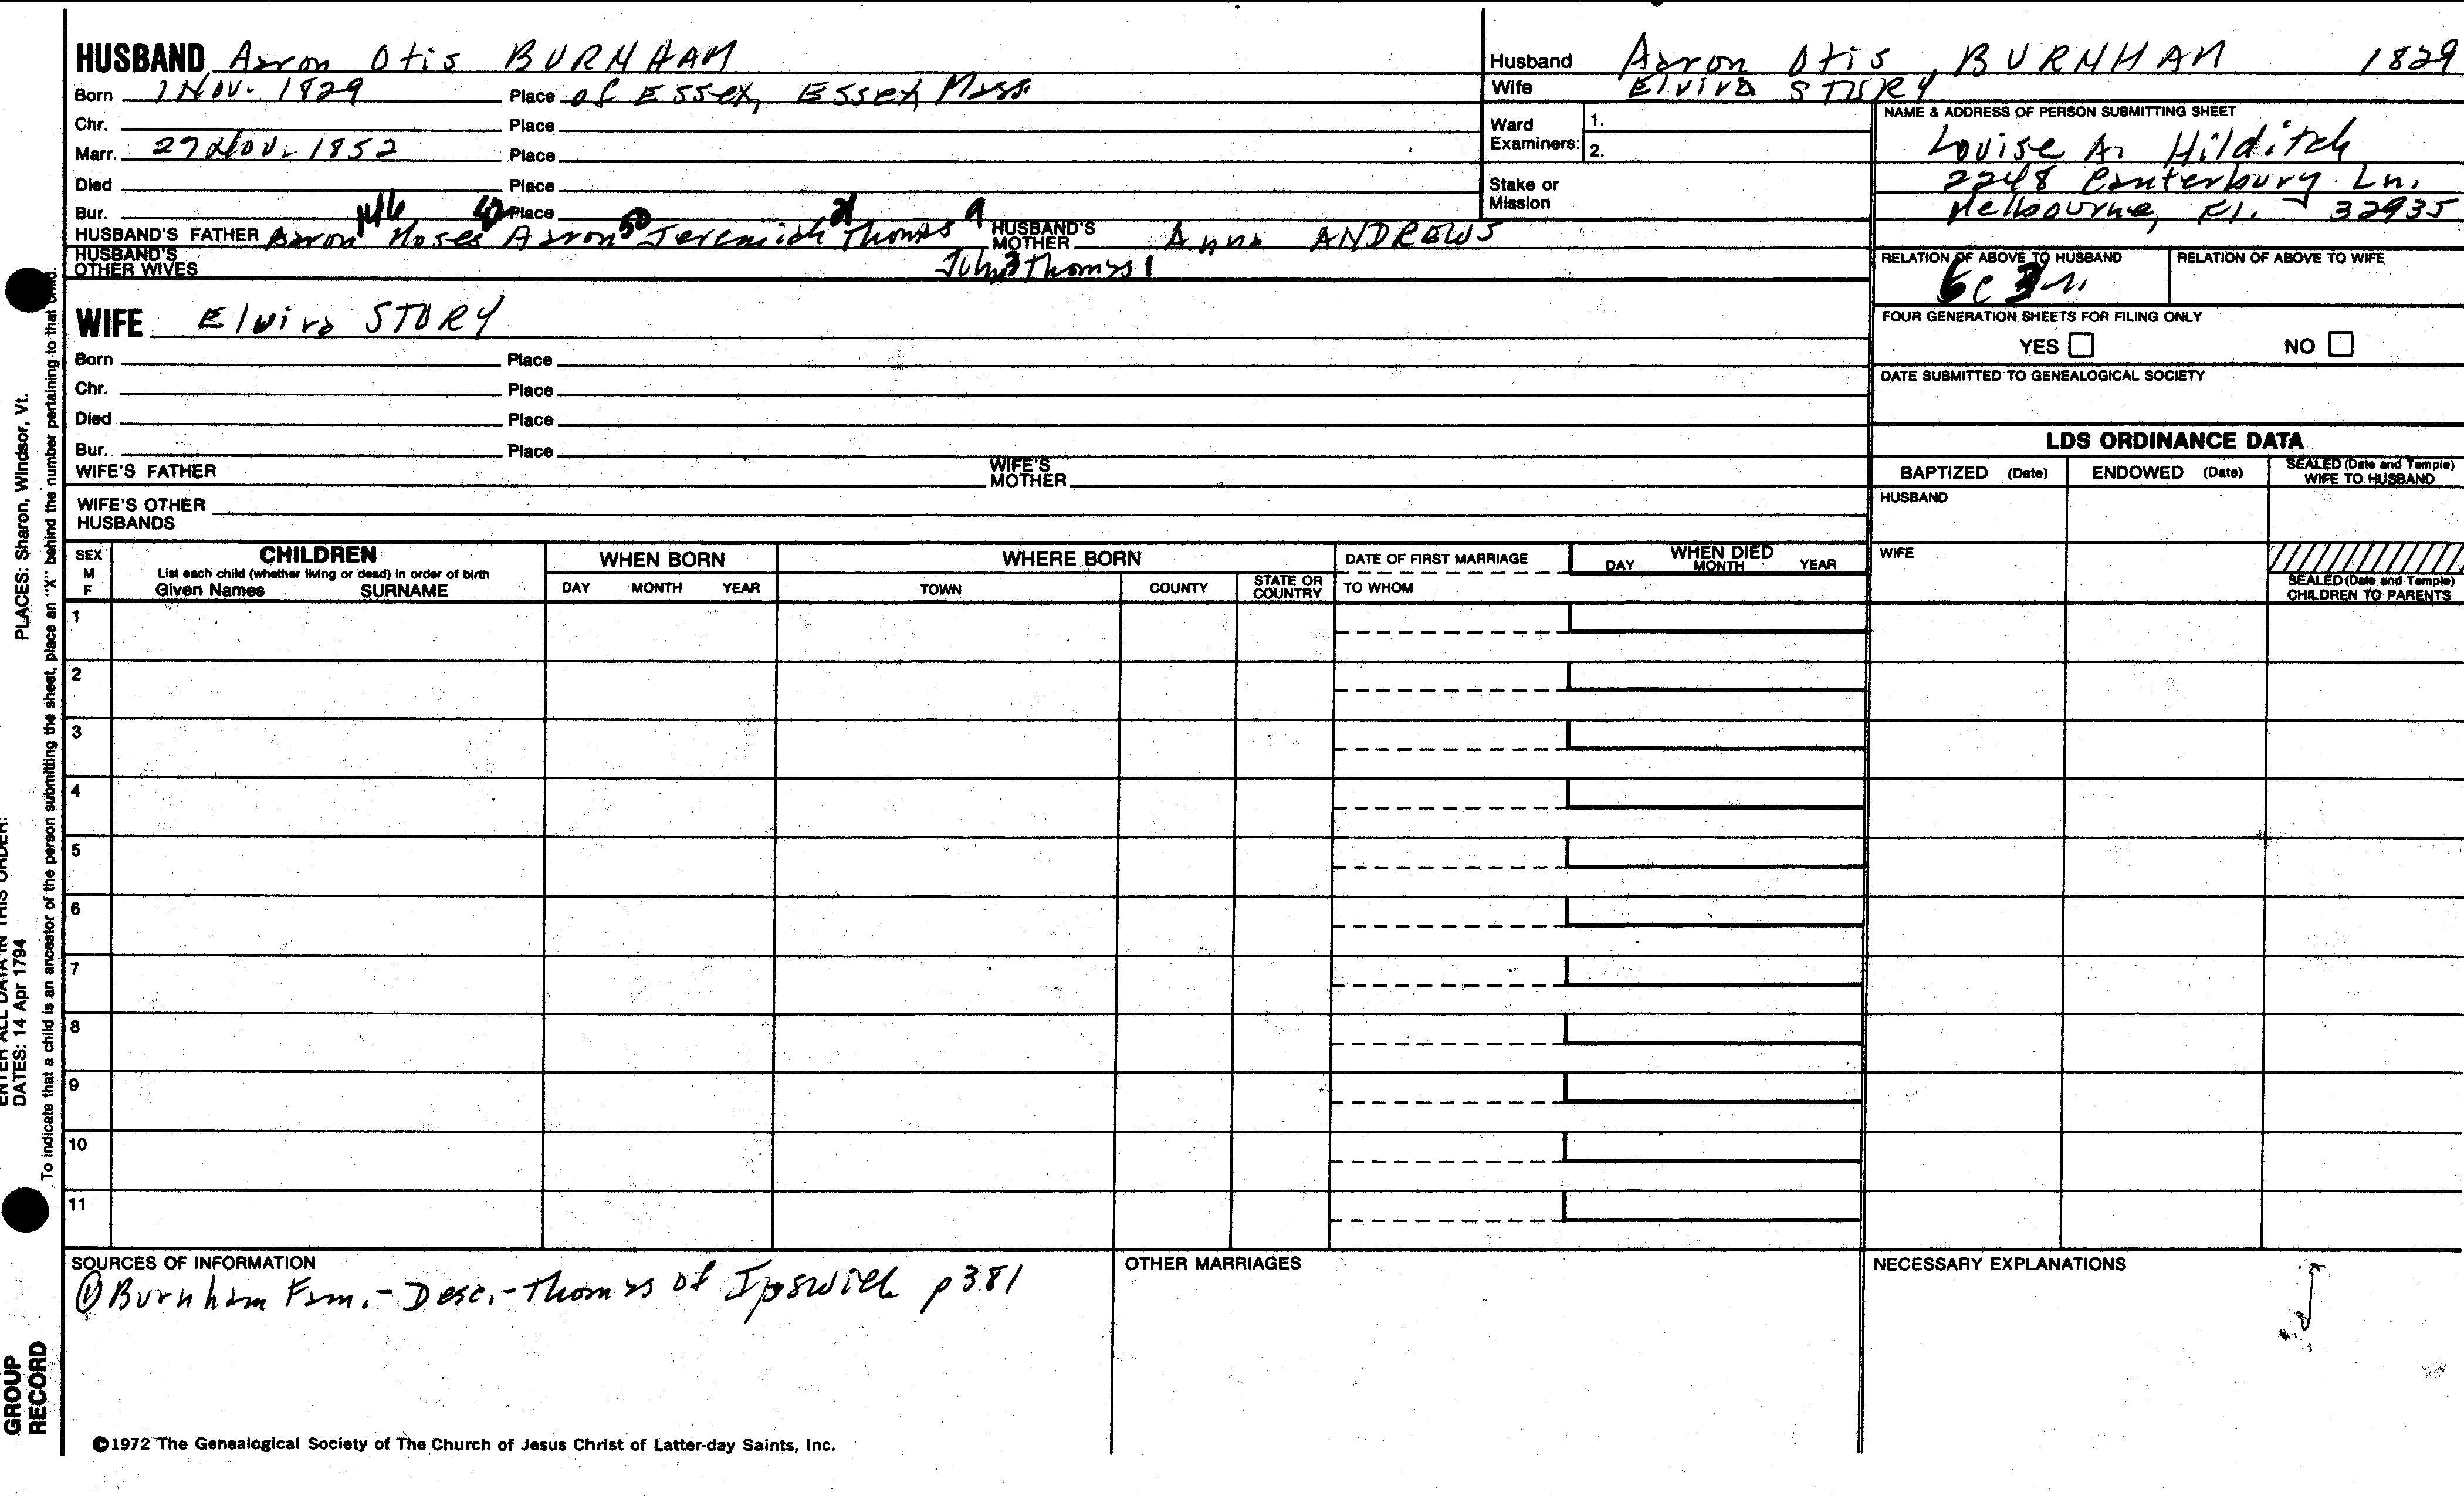 HUSBAND Aaron Otis BURNHAM
Born 1 Nov. 1829 Place of Essex, Essex, Mass.
Chr. Place
Marr. 27 Nov. 1852 Place
Died Place
Bur. Place
146 42 50 21 9
HUSBAND'S FATHER Aaron Moses Aaron Jeremiah Thomas HUSBAND'S MOTHER Anna ANDREWS
HUSBAND'S OTHER WIVES John 3 Thomas 1
WIFE Elvira STORY
Born Place
Chr. Place
Died Place
Bur. Place
WIFE'S FATHER WIFE'S MOTHER
WIFE'S OTHER HUSBANDS
Husband Aaron Otis BURNHAM 1829
Wife Elvira STORY
Ward Examiners: 1.
2.
Stake or Mission
NAME & ADDRESS OF PERSON SUBMITTING SHEET
Louise A. Hilditch
2248 Canterbury Ln.
Melbourne, Fl. 32935
RELATION OF ABOVE TO HUSBAND RELATION OF ABOVE TO WIFE
6c 3r.
FOUR GENERATION SHEETS FOR FILING ONLY
YES NO
DATE SUBMITTED TO GENEALOGICAL SOCIETY
LDS ORDINANCE DATA
BAPTIZED (Date) ENDOWED (Date) SEALED (Date and Temple) WIFE TO HUSBAND
HUSBAND
WIFE
SEALED (Date and Temple) CHILDREN TO PARENTS
SEX M F
CHILDREN
List each child (whether living or dead) in order of birth
Given Names SURNAME
WHEN BORN
DAY MONTH YEAR
WHERE BORN
TOWN COUNTY STATE OR COUNTRY
DATE OF FIRST MARRIAGE
TO WHOM
WHEN DIED
DAY MONTH YEAR
1
2
3
4
5
6
7
8
9
10
11
SOURCES OF INFORMATION
① Burnham Fam. - Desc. - Thomas of Ipswich p 381
OTHER MARRIAGES
NECESSARY EXPLANATIONS
©1972 The Genealogical Society of The Church of Jesus Christ of Latter-day Saints, Inc.
ENTER ALL DATA IN THIS ORDER:
DATES: 14 Apr 1794
PLACES: Sharon, Windsor, Vt.
To indicate that a child is an ancestor of the person submitting the sheet, place an "X" behind the number pertaining to that child.
GROUP
RECORD